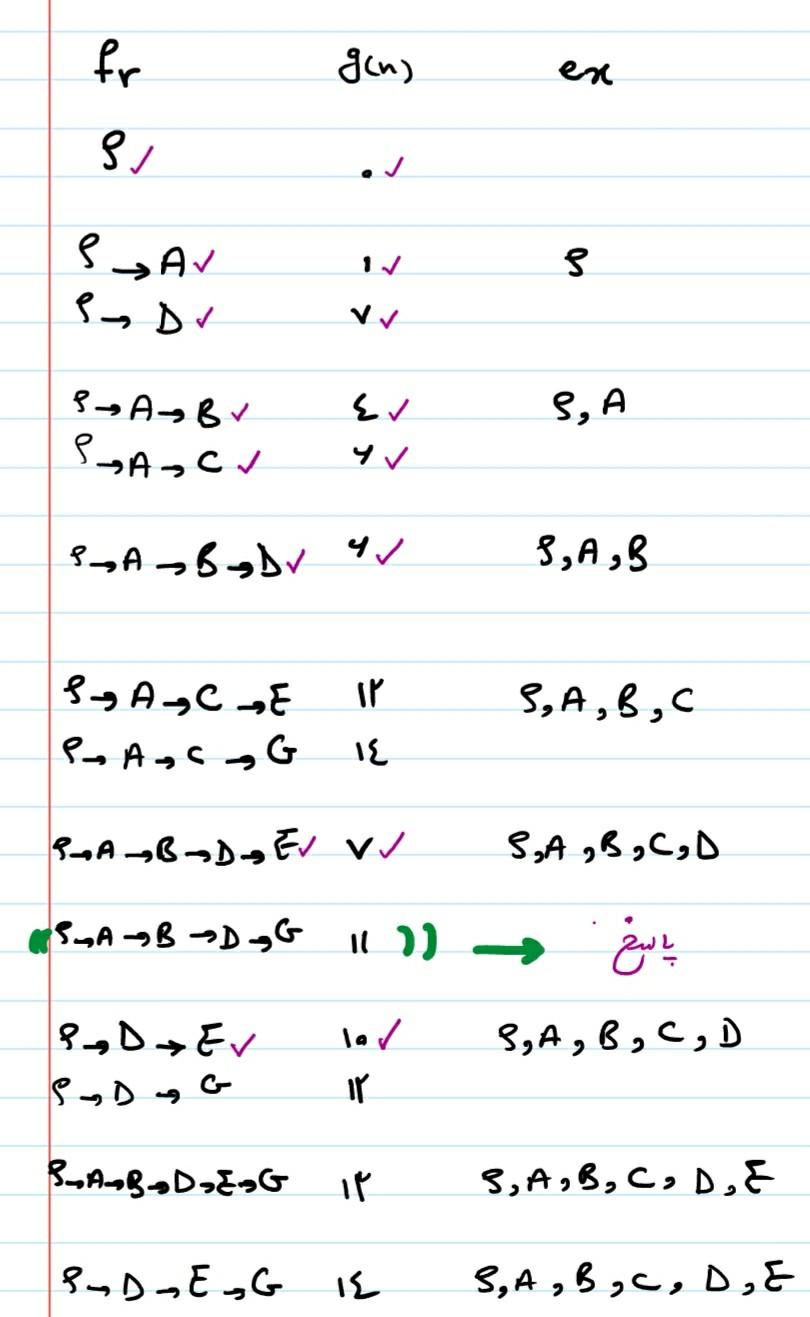 fr g(n) ex
S ✓ ۰ ✓
S → A ✓ ۱ ✓ S
S → D ✓ ۷ ✓
S → A → B ✓ ٤ ✓ S, A
S → A → C ✓ ۶ ✓
S → A → B → D ✓ ۶ ✓ S, A, B
S → A → C → E ۱۲ S, A, B, C
S → A → C → G ۱٤
S → A → B → D → E ✓ ۷ ✓ S, A, B, C, D
« S → A → B → D → G ۱۱ )) → پاسخ
S → D → E ✓ ۱۰ ✓ S, A, B, C, D
S → D → G ۱۲
S → A → B → D → E → G ۱۲ S, A, B, C, D, E
S → D → E → G ۱٤ S, A, B, C, D, E